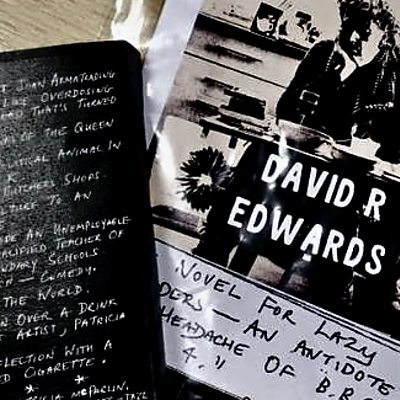 T JOAN ARMATRADING
LIKE OVERDOSING
EAD THAT'S TURNED
OF THE QUEEN
LITICAL ANIMAL IN
K
BUTCHERS SHOPS.
TO AN
AN UNEMPLOYABLE
TEACHER OF
NDARY SCHOOLS
COMEDY.
THE WORLD.
N OVER A DRINK
T ARTIST, PATRICIA
FLECTION WITH A
ED CIGARETTE.
DAVID R
EDWARDS
NOVEL FOR LAZY
DERS — AN ANTIDOTE
HEADACHE OF B.B.C
4."